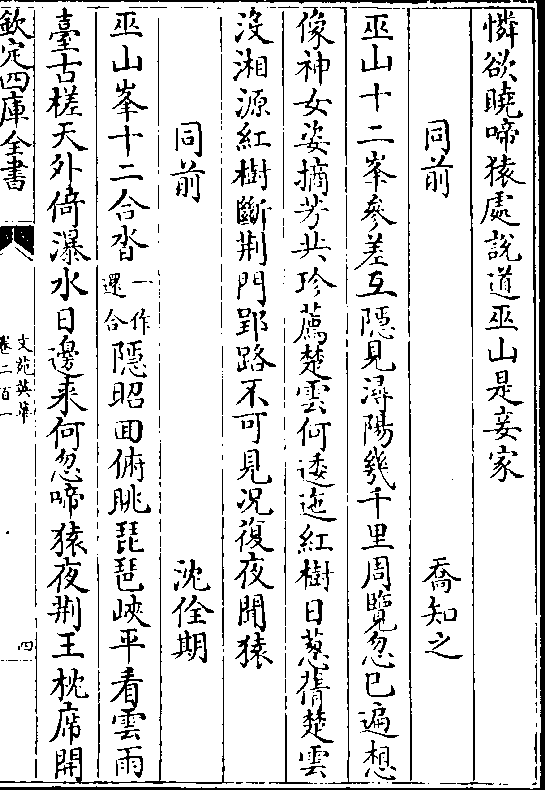 憐欲曉啼猿處說道巫山是妾家
同前 喬知之
巫山十二峯參差互隱見潯陽幾千里周覽忽已遍想
像神女姿摘芳共珍薦楚雲何逶迤紅樹日蔥蒨楚雲
沒湘源紅樹斷荆門郢路不可見况復夜聞猿
同前 沈佺期
巫山峯十二合沓一作還合隱昭回俯眺琵琶峽平看雲雨
臺古槎天外倚瀑水日邊來何忽啼猿夜荆王枕席開
欽定四庫全書
文苑英華
卷二百一
四